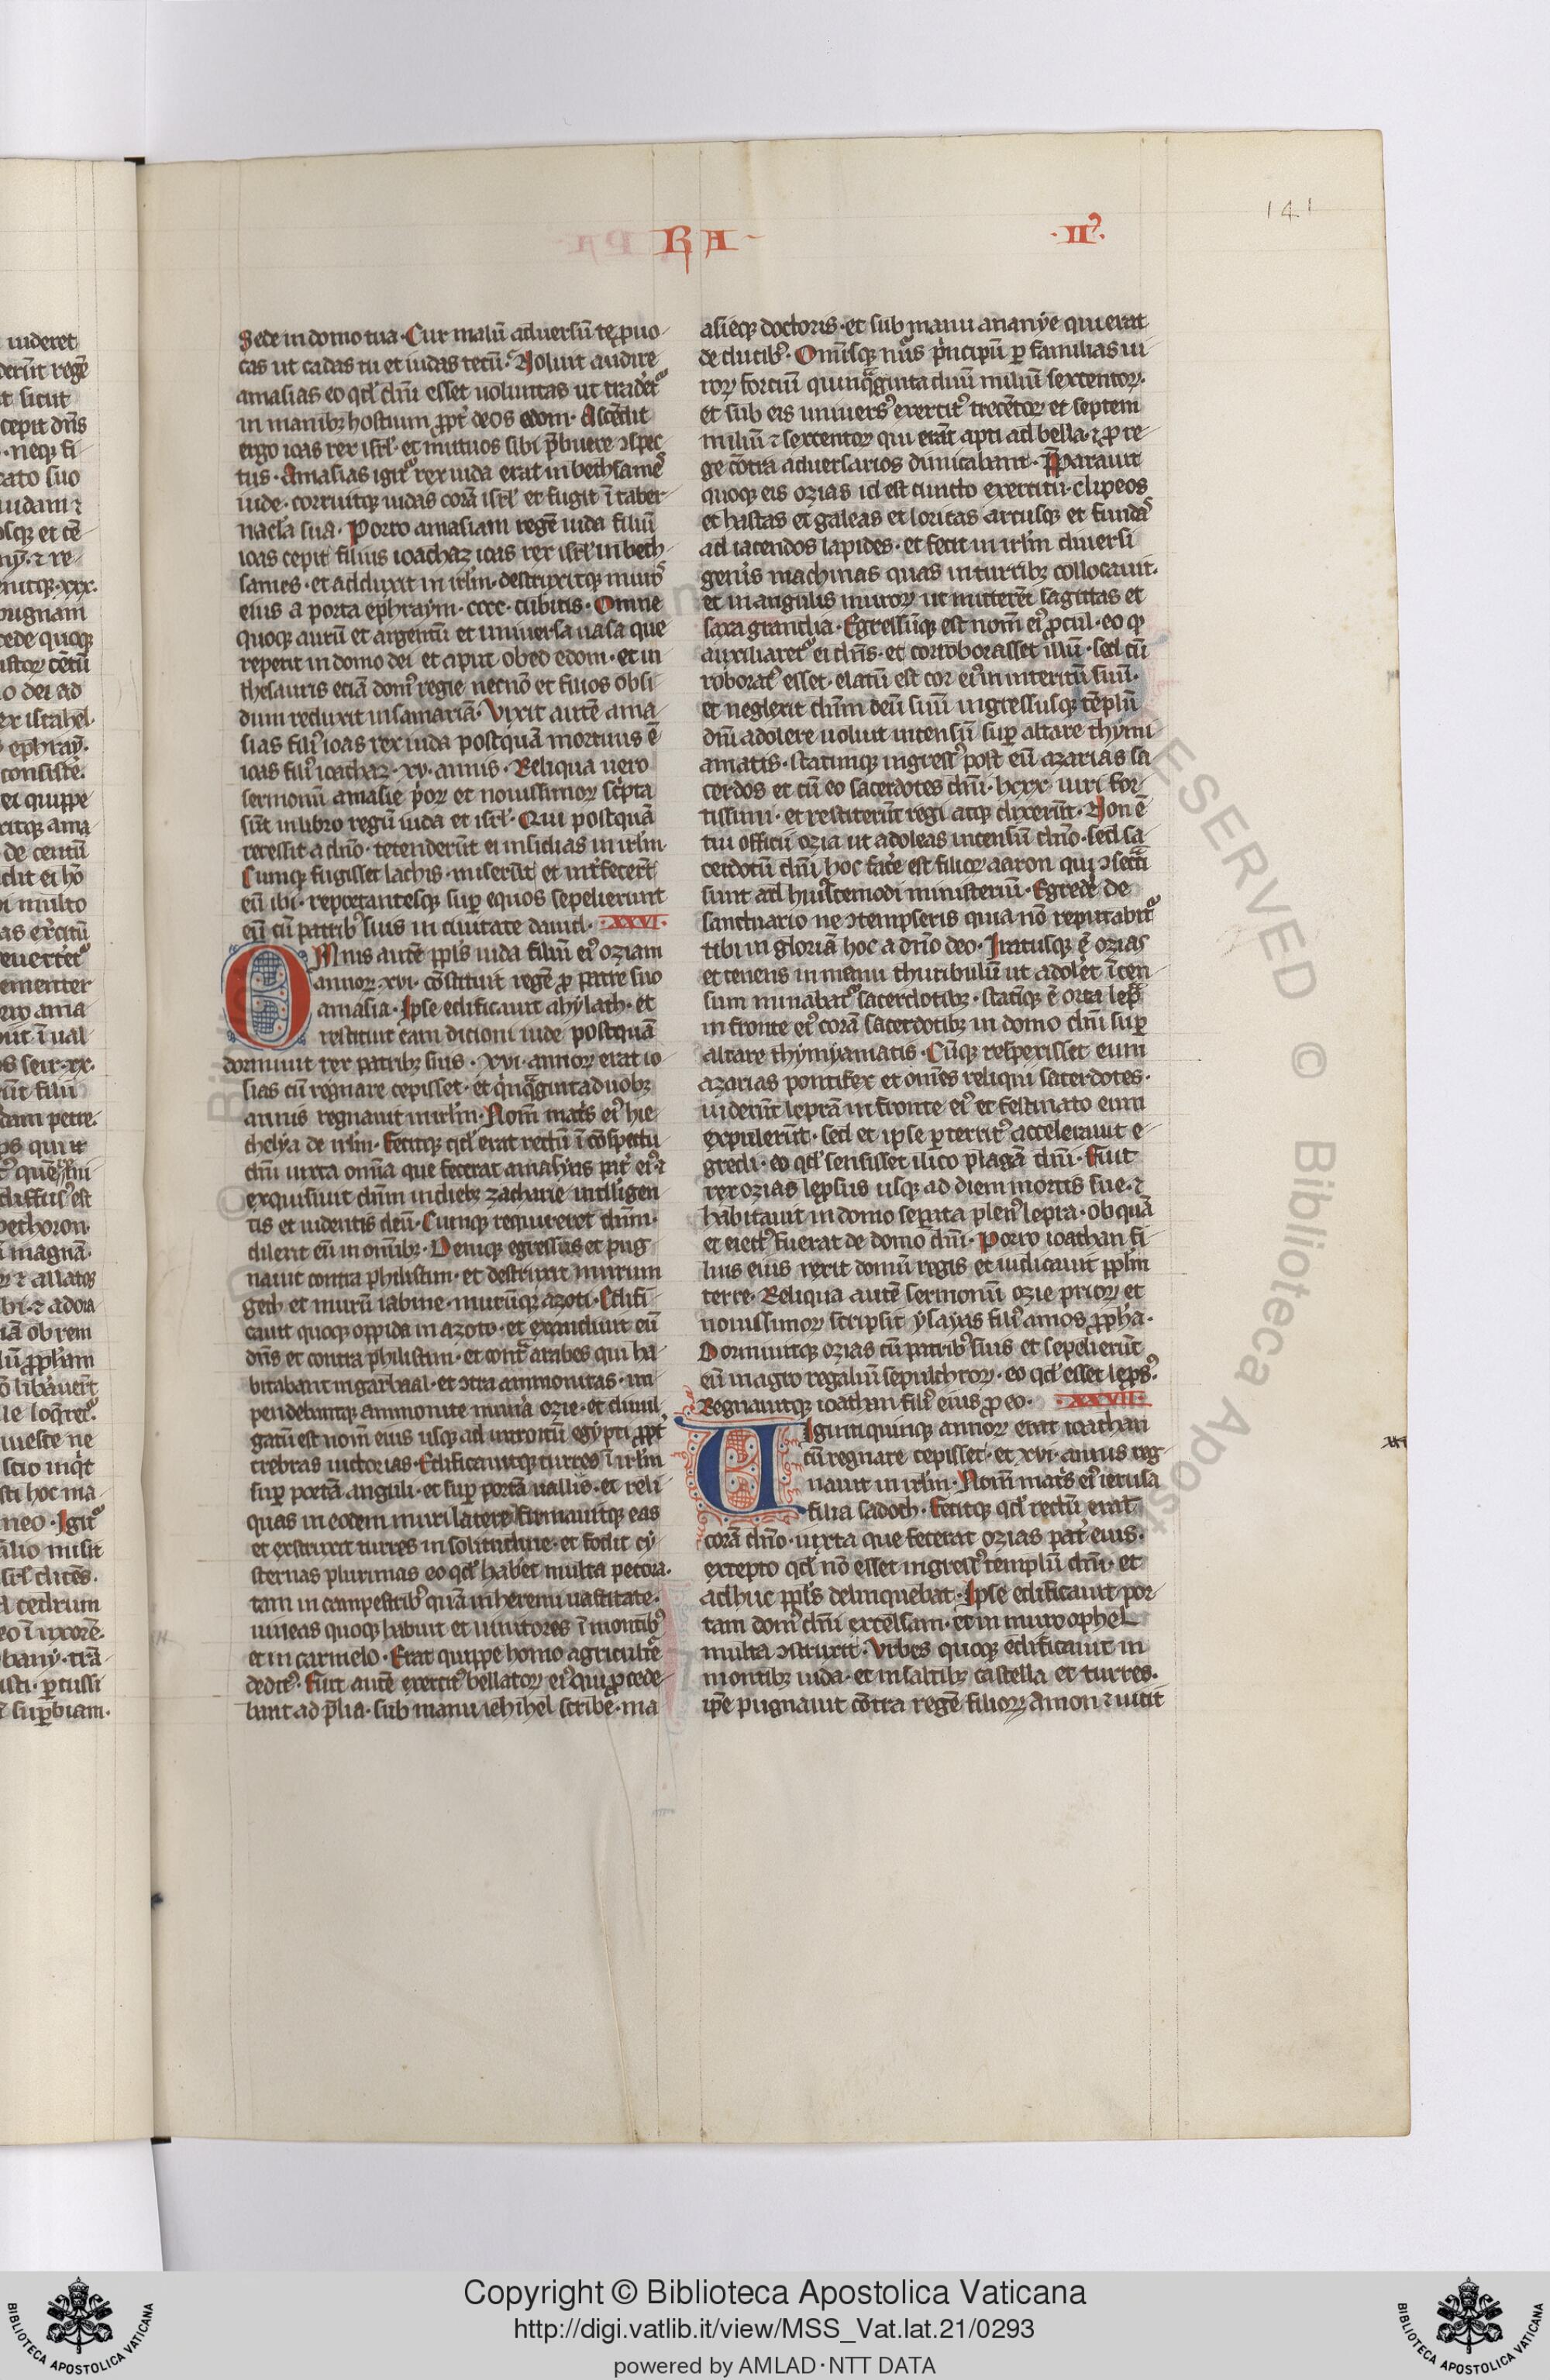 RA
·II·
141
Sede in domo tua· Cur malū aduersū te ꝓuo
cas ut cadas tu et iudas tecū· Noluit audire
amasias eo qd' dn̄i esset uoluntas ut traderet᷑
in manibꝫ hostium ꝓpt' deos edom· Ascēdit
ergo ioas rex isrl' et mutuos sibi p̄buere ↄspec
tus· Amasias igit᷑ rex iuda erat in bethsames
iude· corruitqꝫ iudas corā isrl' et fugit ī taber
nacl'a sua· Porro amasiam regē iuda filiū
ioas cepit filius ioachaz ioas rex isrl' in beth
sames· et adduxit in irl'm· destruxitqꝫ murū
eius a porta ephraym· cccc· cubitis· Omne
quoqꝫ aurū et argentū et uniuersa uasa que
reperit in domo dei et aput obed edom· et in
thesauris etiā domꝰ regie necnō et filios obsi
dum reduxit in samariā· Vixit autē ama
sias filiꝰ ioas rex iuda postquā mortuus ē
ioas filiꝰ ioachaz· xv· annis· Reliqua uero
sermonū amasie p'oꝝ et nouissimoꝝ sc'pta
sūt in libro regū iuda et isrl'· Qui postquā
recessit a dn̄o· tetenderūt ei insidias in irl'm·
Cumqꝫ fugisset lachis· miserūt et int'fecer̄t
eū ibi· reportantesqꝫ sup̄ equos sepelierunt
eū cū patribꝰ suis in ciuitate dauid· ·XXVI·
OMnis autē ppl's iuda filiū eiꝰ oziam
annoꝝ· xvi· cōstituit regē ꝓ patre suo
amasia· Ipse edificauit ahylath· et
restituit eam dicioni iude postquā
dormiuit rex patribꝫ suis· xvi· annoꝝ erat io
sias cū regnare cepisset· et q'nq̄ginta duobꝫ
annis regnauit in irl'm· Nom̄ mat's eiꝰ hie
chelya de irl'm· Fecitqꝫ qd' erat rectū ī cōspectu
dn̄i iuxta om̄ia que fecerat amasyas pat' eiꝰ ⁊
exquisiuit dn̄m in diebꝫ zacharie intelligen
tis et uidentis deū· Cumqꝫ requireret dn̄m·
dilexit eū in om̄ibꝫ· Deniqꝫ egressus et pug
nauit contra philistim· et destruxit murum
geth et murū iabine· murūqꝫ azoti· Edifi
cauit quoqꝫ oppida in azoto· et exaudiuit eū
dn̄s et contra philistim· et cont᷑ arabes qui ha
bitabant in garbaal· et ↄtra ammonitas· im
pendebantqꝫ ammonite mun'a ozie· et diuul
gatū est nom̄ eius usqꝫ ad introitū egypti ꝓpt'
crebras uictorias· Edificauitqꝫ turres ī irl'm
sup̄ portā anguli· et sup̄ portā uallis· et reli
quas in eodem muri latere firmauitqꝫ eas
et exstruxit turres in solitudine· et fodit cy
sternas plurimas eo qd' hab'et multa pecora·
tam in campestribꝰ quā in heremi uastitate·
uineas quoqꝫ habuit et uinitores ī montibꝰ
et in carmelo· Erat quippe homo agriculture
deditꝰ· Fuit autē exercitꝰ bellatoꝝ eiꝰ qui ꝓcede
bant ad p̄lia· sub manu iehihel scribe· ma
asieqꝫ doctoris· et sub manu ananye qui erat
de ducibꝰ· Omīsqꝫ nūs p'ncipū ꝑ familias ui
roꝝ fortiū quinq̄ginta duū miliū sextentoꝝ·
et sub eis uniuersꝰ exercitꝰ trecētoꝝ et septem
miliū ⁊ sextentoꝝ qui erāt apti ad bella· ⁊ ꝓ re
ge cōtra aduersarios dimicabant· P̄parauit
quoqꝫ eis ozias id est cuncto exercitui· clipeos
et hastas et galeas et loricas arcusqꝫ et fundas
ad iaciendos lapides· et fecit in irl'm diuersi
gen'is machinas quas in turribꝫ collocauit·
et in angulis muroꝝ ut mitterēt sagittas et
saxa grandia· Egressūqꝫ est nom̄ eiꝰ ꝓcul· eo ꝙ
auxiliaret᷑ ei dn̄s· et corroborasset illū· sed cū
roboratꝰ esset· elatū est cor eiꝰ in interitū suū·
et neglexit dn̄m deū suū ingressusqꝫ tēplū
dn̄i adolere uoluit incensū sup̄ altare thymi
amatis· statimqꝫ ingressꝰ post eū azarias sa
cerdos et cū eo sacerdotes dn̄i· lxxx· uiri for
tissimi· et restiterūt regi atqꝫ dixerūt· Non ē
tui officii ozia ut adoleas incensū dn̄o· sed sa
cerdotū dn̄i hoc fac'e est filioꝝ aaron qui ↄsecr̄ti
sunt ad huiuscemodi ministeriū· Egrede' de
sanctuario ne ↄtempseris quia nō reputabit᷑
tibi in gloriā hoc a dn̄o deo· Iratusqꝫ ē ozias
et tenens in manu thuribulū ut adolet īcen
sum minabat᷑ sacerdotibꝫ· statīqꝫ ē orta lep̄
in fronte eiꝰ corā sacerdotibꝫ in domo dn̄i sup̄
altare thymyamatis· Cūqꝫ respexisset eum
azarias pontifex et om̄es reliqui sacerdotes·
uiderūt leprā in fronte eiꝰ et festinato eum
expulerūt· sed et ipse ꝑterritꝰ accelerauit e
gredi· eo qd' sensisset ilico plagā dn̄i· Fuit
rex ozias lepsus usqꝫ ad diem mortis sue· ⁊
habitauit in domo seꝑata plenꝰ lepra· ob quā
et eiectꝰ fuerat de domo dn̄i· Porro ioathan fi
lius eius rexit domū regis et iudicauit ppl'm
terre· Reliqua autē sermonū ozie prioꝝ et
nouissimoꝝ scripsit ysayas filiꝰ amos ꝓph'a·
Dormiuitqꝫ ozias cū patribꝰ suis et sepelierūt
eū in agro regaliū sepulchroꝝ· eo qd' esset lepsꝰ·
Regnauitqꝫ ioathan filiꝰ eius ꝓ eo· ·XXVII·
UIginti quinqꝫ annoꝝ erat ioathan
cū regnare cepisset· et xvi· annis reg
nauit in irl'm· Nom̄ mat's eiꝰ ierusa
filia sadoch· Fecitqꝫ qd' rectū erat
corā dn̄o· iuxta que fecerat ozias pat' eius·
excepto qd' nō esset ingressꝰ templū dn̄i· et
adhuc ppl's delinquebat· Ipse edificauit por
tam domꝰ dn̄i excelsam· et in muro ophel
multa ↄstruxit· Vrbes quoqꝫ edificauit in
montibꝫ iuda· et in saltibꝫ castella et turres·
ip̄e pugnauit cōtra regē filioꝝ amon ⁊ uicit
Copyright © Biblioteca Apostolica Vaticana
http://digi.vatlib.it/view/MSS_Vat.lat.21/0293
powered by AMLAD·NTT DATA
BIBLIOTECA APOSTOLICA VATICANA
BIBLIOTECA APOSTOLICA VATICANA